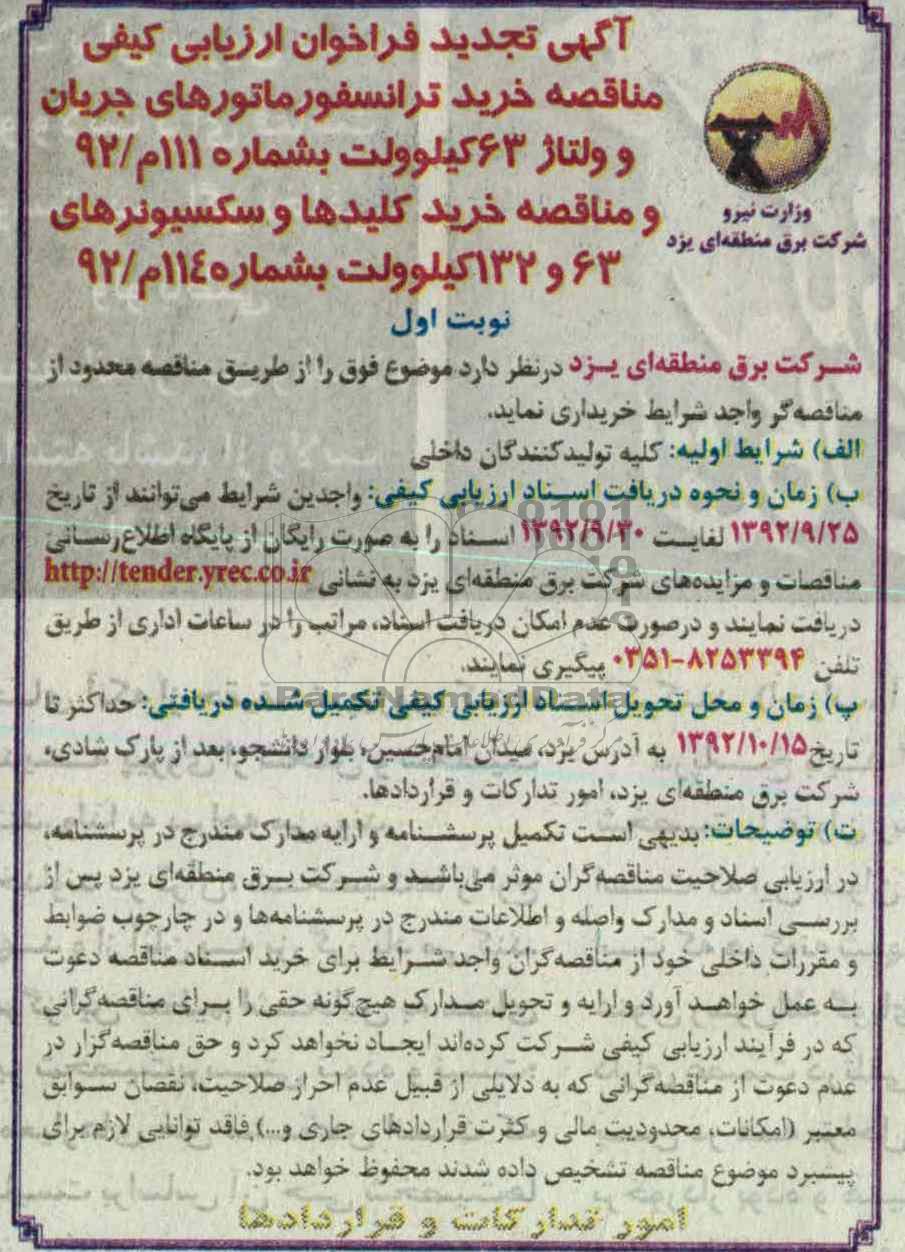 آگهی تجدید فراخوان ارزیابی کیفی
مناقصه خرید ترانسفورماتورهای جریان
و ولتاژ ۶۳کیلوولت بشماره ۱۱۱م/۹۲
و مناقصه خرید کلیدها و سکسیونرهای
۶۳ و ۱۳۲کیلوولت بشماره۱۱٤م/۹۲
وزارت نیرو
شرکت برق منطقه‌ای یزد
نوبت اول
شرکت برق منطقه‌ای یزد درنظر دارد موضوع فوق را از طریق مناقصه محدود از
مناقصه‌گر واجد شرایط خریداری نماید.
الف) شرایط اولیه: کلیه تولیدکنندگان داخلی
ب) زمان و نحوه دریافت اسناد ارزیابی کیفی: واجدین شرایط می‌توانند از تاریخ
۱۳۹۲/۹/۲۵ لغایت ۱۳۹۲/۹/۳۰ اسناد را به صورت رایگان از پایگاه اطلاع‌رسانی
مناقصات و مزایده‌های شرکت برق منطقه‌ای یزد به نشانی http://tender.yrec.co.ir
دریافت نمایند و درصورت عدم امکان دریافت اسناد، مراتب را در ساعات اداری از طریق
تلفن ۸۲۵۳۳۹۴-۰۳۵۱ پیگیری نمایند.
ParsNamadData
پ) زمان و محل تحویل اسناد ارزیابی کیفی تکمیل شده دریافتی: حداکثر تا
تاریخ۱۳۹۲/۱۰/۱۵ به آدرس یزد، میدان امام‌حسین، بلوار دانشجو، بعد از پارک شادی،
شرکت برق منطقه‌ای یزد، امور تدارکات و قراردادها.
ت) توضیحات: بدیهی است تکمیل پرسشنامه و ارایه مدارک مندرج در پرسشنامه،
در ارزیابی صلاحیت مناقصه‌گران موثر می‌باشد و شرکت برق منطقه‌ای یزد پس از
بررسی اسناد و مدارک واصله و اطلاعات مندرج در پرسشنامه‌ها و در چارچوب ضوابط
و مقررات داخلی خود از مناقصه‌گران واجد شرایط برای خرید اسناد مناقصه دعوت
به عمل خواهد آورد و ارایه و تحویل مدارک هیچ‌گونه حقی را برای مناقصه‌گرانی
که در فرآیند ارزیابی کیفی شرکت کرده‌اند ایجاد نخواهد کرد و حق مناقصه‌گزار در
عدم دعوت از مناقصه‌گرانی که به دلایلی از قبیل عدم احراز صلاحیت، نقصان سوابق
معتبر (امکانات، محدودیت مالی و کثرت قراردادهای جاری و...) فاقد توانایی لازم برای
پیشبرد موضوع مناقصه تشخیص داده شدند محفوظ خواهد بود.
امور تدارکات و قراردادها